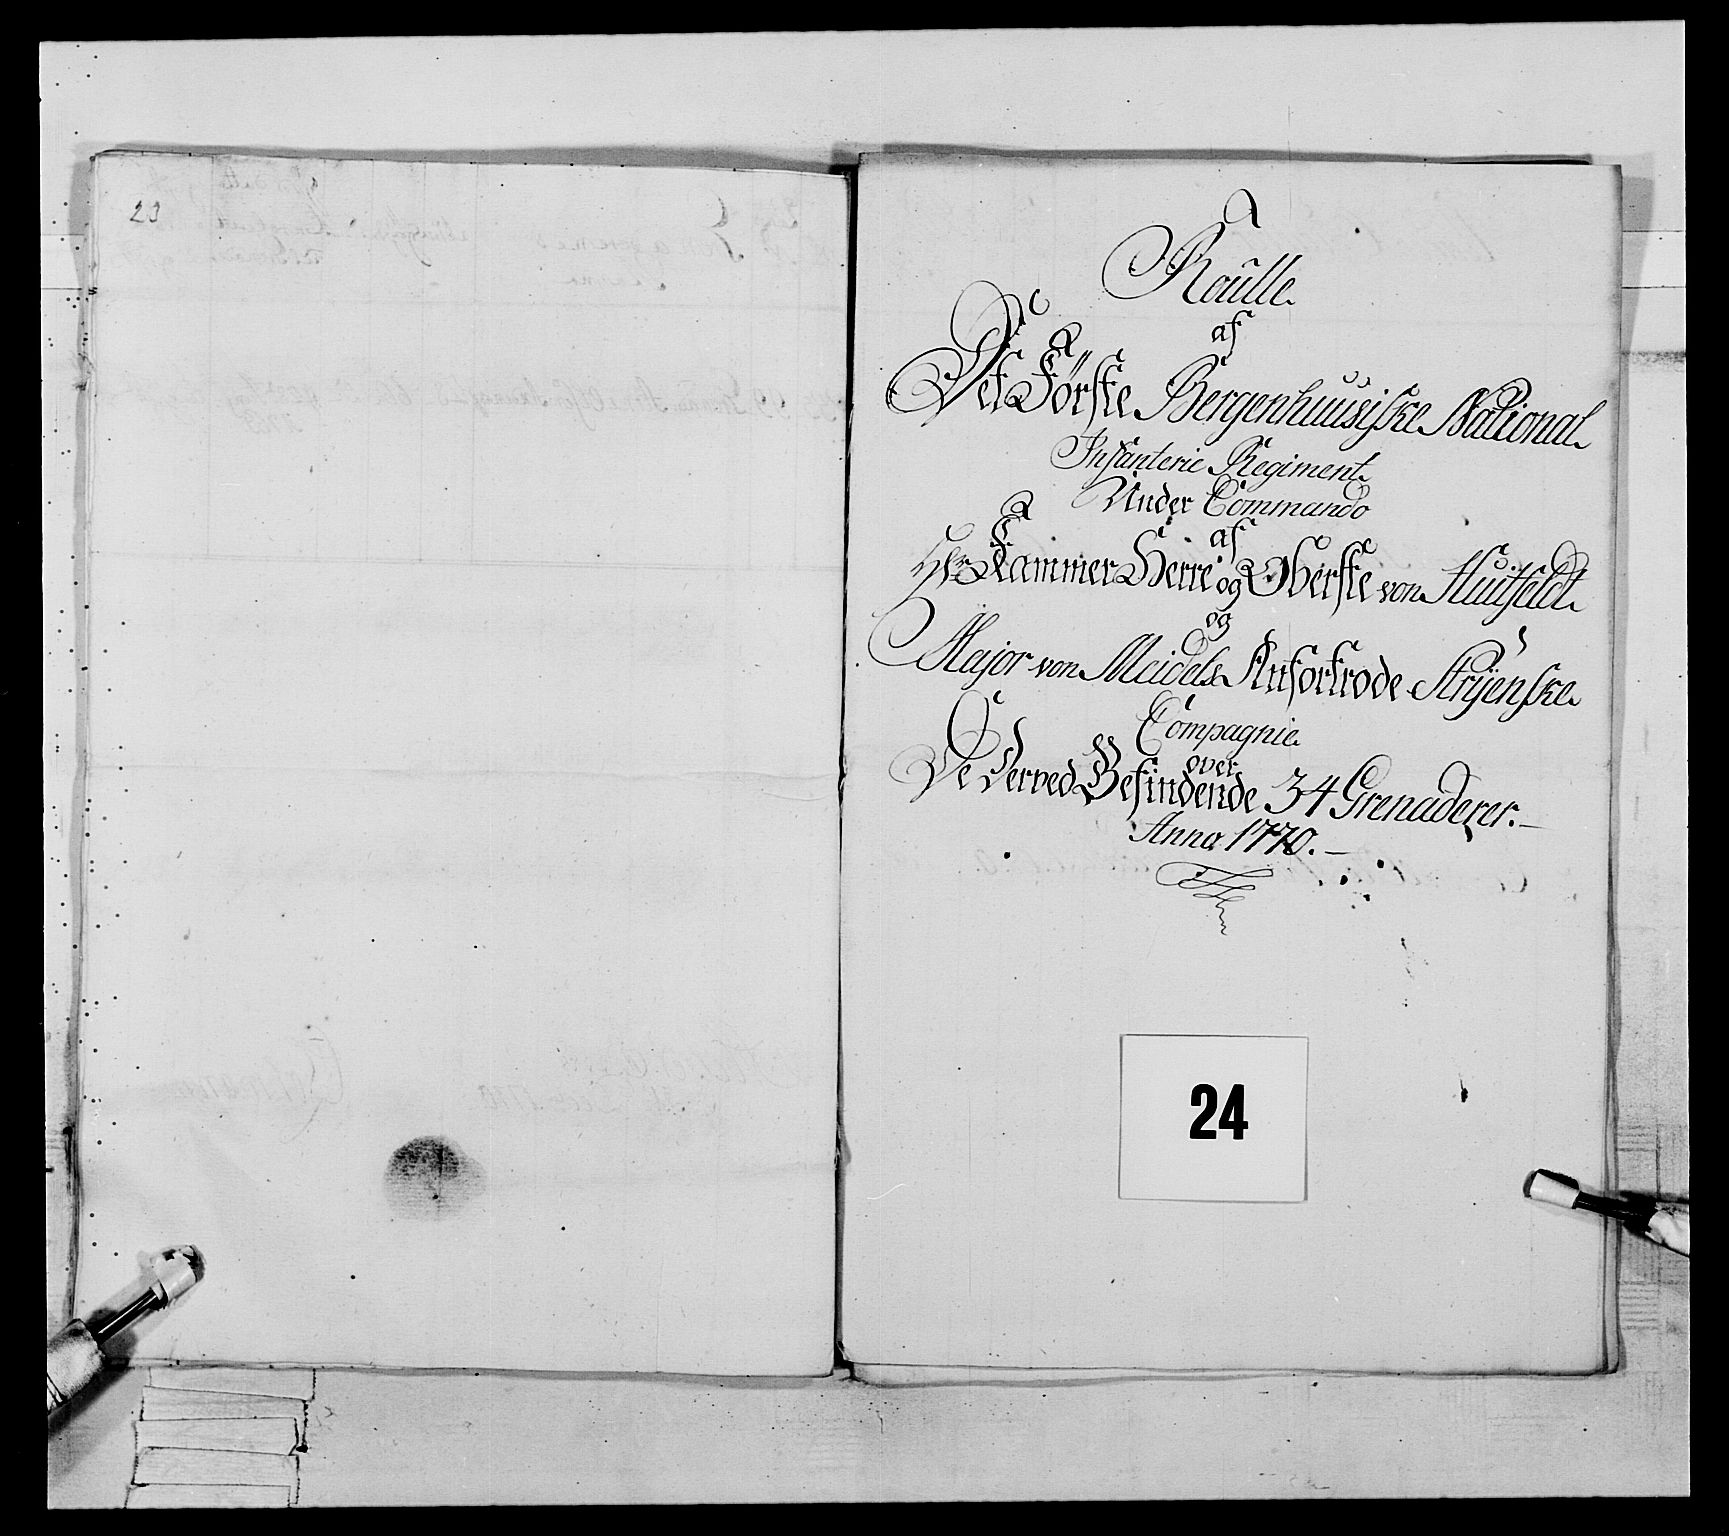 23
Roulle
af
Det Förste Bergenhuusiske National
Infanterie Regiment
Under Commando
af
Hr Kammer Herre og Oberste von Huitfeldt
og
Major von Meidels Anfortrode Stryenske
Compagnie
over
De Derved Befindende 34 Grenaderer.
Anno 1770.
24